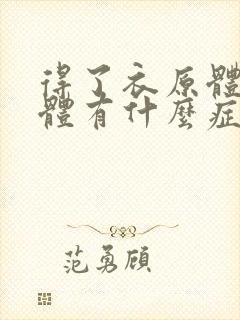 得了衣原體
體有什麼症
范勇顧